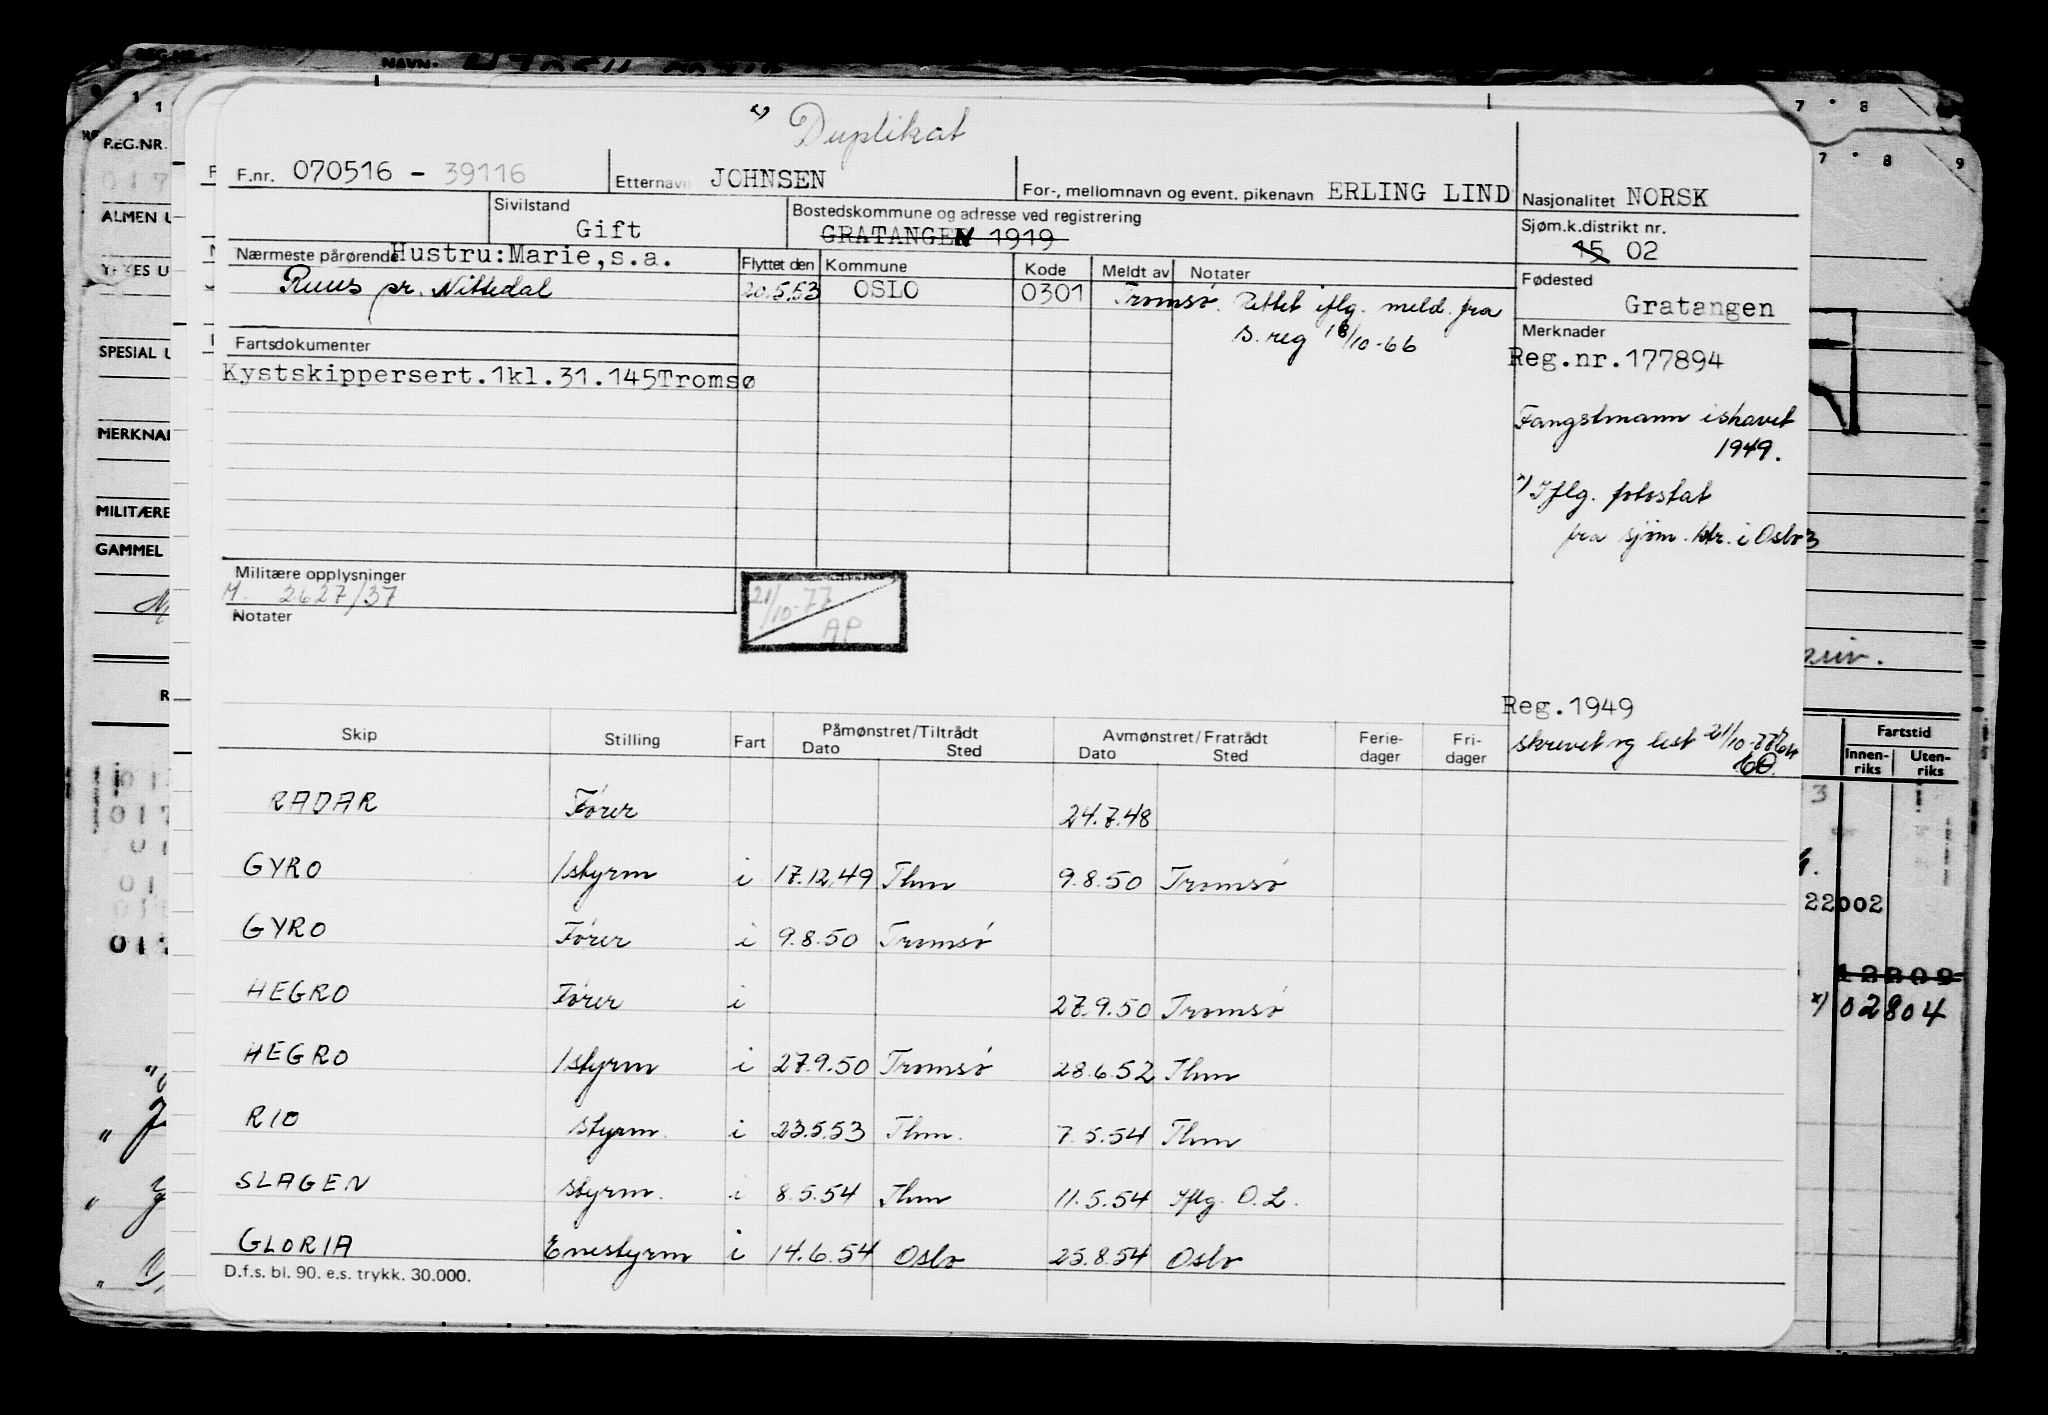 x) Duplikat
F.nr. 070516 - 39116 Etternavn JOHNSEN For-, mellomnavn og event. pikenavn ERLING LIND Nasjonalitet NORSK
Sivilstand Gift Bostedskommune og adresse ved registrering GRATANGEN 1919 Sjøm.k.distrikt nr. 15 02
Nærmeste pårørende Hustru:Marie,s.a. Flyttet den Kommune Kode Meldt av Notater Fødested Gratangen
Ruus pr. Nittedal 20.5.53 OSLO 0301 Tromsø. Rettet iflg. meld. fra
s. reg 18/10-66
Merknader
Reg.nr.177894
Fartsdokumenter
Kystskippersert.1kl.31.145Tromsø
Fangstmann ishavet
1949.
x) Iflg. fotostat
fra sjøm. ktr. i Oslo
Militære opplysninger
M. 2627/37
Notater
21/10-77
AP
Reg.1949
skrevet og lest 21/10-77
Skip Stilling Fart Påmønstret/Tiltrådt Dato Sted Avmønstret/Fratrådt Dato Sted Ferie-dager Fri-dager
RADAR Fører 24.7.48
GYRO 1styrm i 17.12.49 Thm 9.8.50 Tromsø
GYRO Fører i 9.8.50 Tromsø
HEGRO Fører i 27.9.50 Tromsø
HEGRO 1styrm i 27.9.50 Tromsø 28.6.52 Thm
RIO styrm. i 23.5.53 Thm. 7.5.54 Thm
SLAGEN styrm. i 8.5.54 Thm 11.5.54 Iflg. O.L.
GLORIA Enestyrm i 14.6.54 Oslo 25.8.54 Oslo
D.f.s. bl. 90. e.s. trykk. 30.000.
REG.NR.
NAVN:
REG.NR.
ALMEN U
YRKES U
SPESIAL U
MERKNAD
MILITÆRE
GAMMEL
7 8
7 8 9
Fartstid
Innen-riks Uten-riks
3
22002
12809
x) 02804